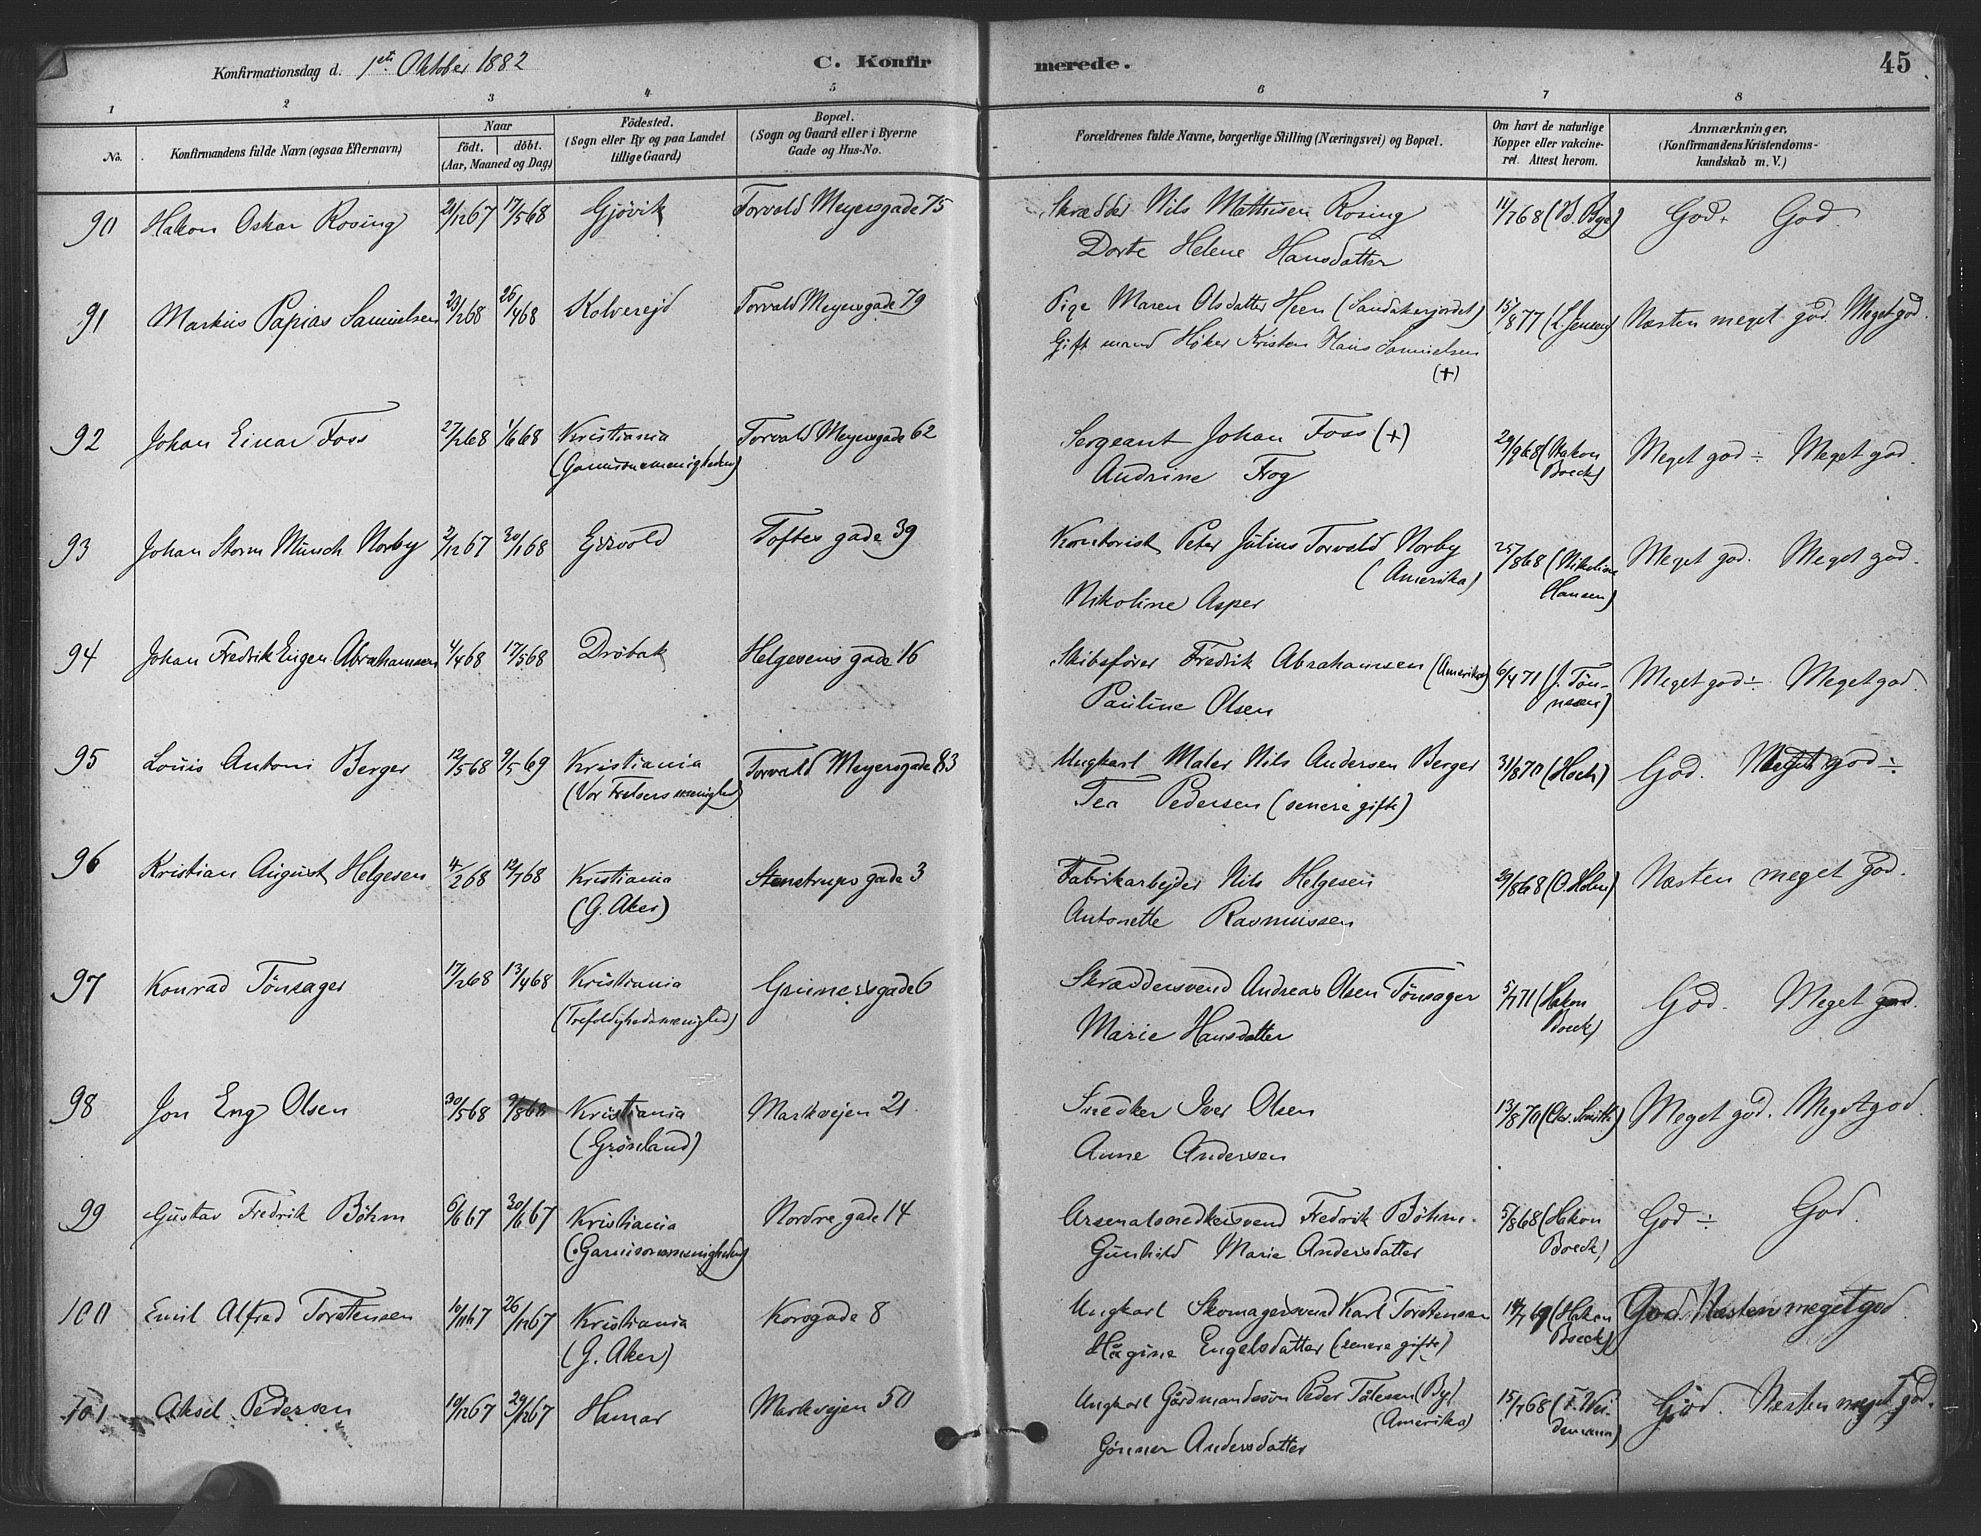 Konfirmationsdag d. 1ste Oktober 1882
C. Konfirmerede.
45
1 2 3 4 5 6 7 8
No.
Konfirmandens fulde Navn (ogsaa Efternavn)
Naar
födt. döbt.
(Aar, Maaned og Dag)
Födested.
(Sogn eller By og paa Landet
tillige Gaard)
Bopæl.
(Sogn og Gaard eller i Byerne
Gade og Hus-No.
Forældrenes fulde Navne, borgerlige Stilling (Næringsvei) og Bopæl.
Om havt de naturlige
Kopper eller vakcine-
ret. Attest herom.
Anmærkninger.
(Konfirmandens Kristendoms-
kundskab m. V.)
90 Hakon Oskar Rosing 21/12 67 17/5 68 Gjøvik Torvald Meyersgade 75 Skrædder Nils Mathisen Rosing 11/7 68 God. God.
Dorte Helene Hansdatter
91 Markus Papias Samuelsen 23/2 68 26/4 68 Kolvereid Torvald Meyersgade 79 Pige Maren Olsdatter Heen (Sandakerjordet) 15/8 77 (L. Jensen) Næsten meget god. Meget god.
Gift mand Høker Kristen Hans Samuelsen
(+)
92 Johan Einar Foss 27/2 68 1/6 68 Kristiania Torvald Meyersgade 62 Sergeant Johan Foss (+) 29/9 68 (Hakon Meget god ÷ Meget god.
(Garnisonsmenigheden) Andrine Frog Boeck)
93 Johan Storm Munch Norby 2/12 67 30/1 68 Eidsvold Toftes gade 39 Kontorist Peter Julius Torvald Norby 25/8 68 (Nikoline Meget god. Meget god.
(Amerika) Hansen)
Nikoline Asper
94 Johan Fredrik Eugen Abrahamsen 4/4 68 17/5 68 Drøbak Helgesens gade 16 Skibsfører Fredrik Abrahamsen (Amerika) 6/4 71 (J. Tøn- Meget god ÷ Meget god.
Pauline Olsen nesen)
95 Louis Antoni Berger 12/5 68 9/5 69 Kristiania Torvald Meyersgade 83 Ungkarl Maler Nils Andersen Berger 31/8 70 God. Meget god ÷
(Vor Frelsers menighed) Tea Pedersen (senere gifte)
96 Kristian August Helgesen 4/2 68 12/7 68 Kristiania Stenstrups gade 3 Fabrikarbejder Nils Helgesen 29/8 68 (O. Holm) Næsten meget god.
(G. Aker) Antonette Rasmussen
97 Konrad Tönsager 17/2 68 13/4 68 Kristiania Grünersgade 6 Skræddersvend Andreas Olsen Tönsager 5/7 71 (Hakon God. Meget god.
(Trefoldighedsmenighed) Marie Hansdatter Boeck)
98 Jon Eng Olsen 30/5 68 9/8 68 Kristiania Markvejen 21 Snedker Iver Olsen 13/8 70 (Chr. Smith) Meget god. Meget god.
(Grønland) Anne Andersen
99 Gustav Fredrik Bøhm 6/6 67 30/6 67 Kristiania Nordre gade 14 Arsenalsnedkersvend Fredrik Bøhm. 5/8 68 (Hakon God ÷ God.
(Garnisonsmenigheden) Gunhild Marie Andersdatter Boeck)
100 Emil Alfred Torstensen 10/11 67 26/12 67 Kristiania Korsgade 8 Ungkarl Skomagersvend Karl Torstensen (Hakon God. Næsten meget god.
(G. Aker) Hågine Engelsdatter (senere gifte) Boeck)
101 Aksel Pedersen 19/12 67 29/12 67 Hamar Markvejen 50 Ungkarl Gårdmandssøn Peder Tolesen (By) 15/7 68 (T. Wei- God. Næsten meget god.
(Amerika) demann)
Gønner Andersdatter